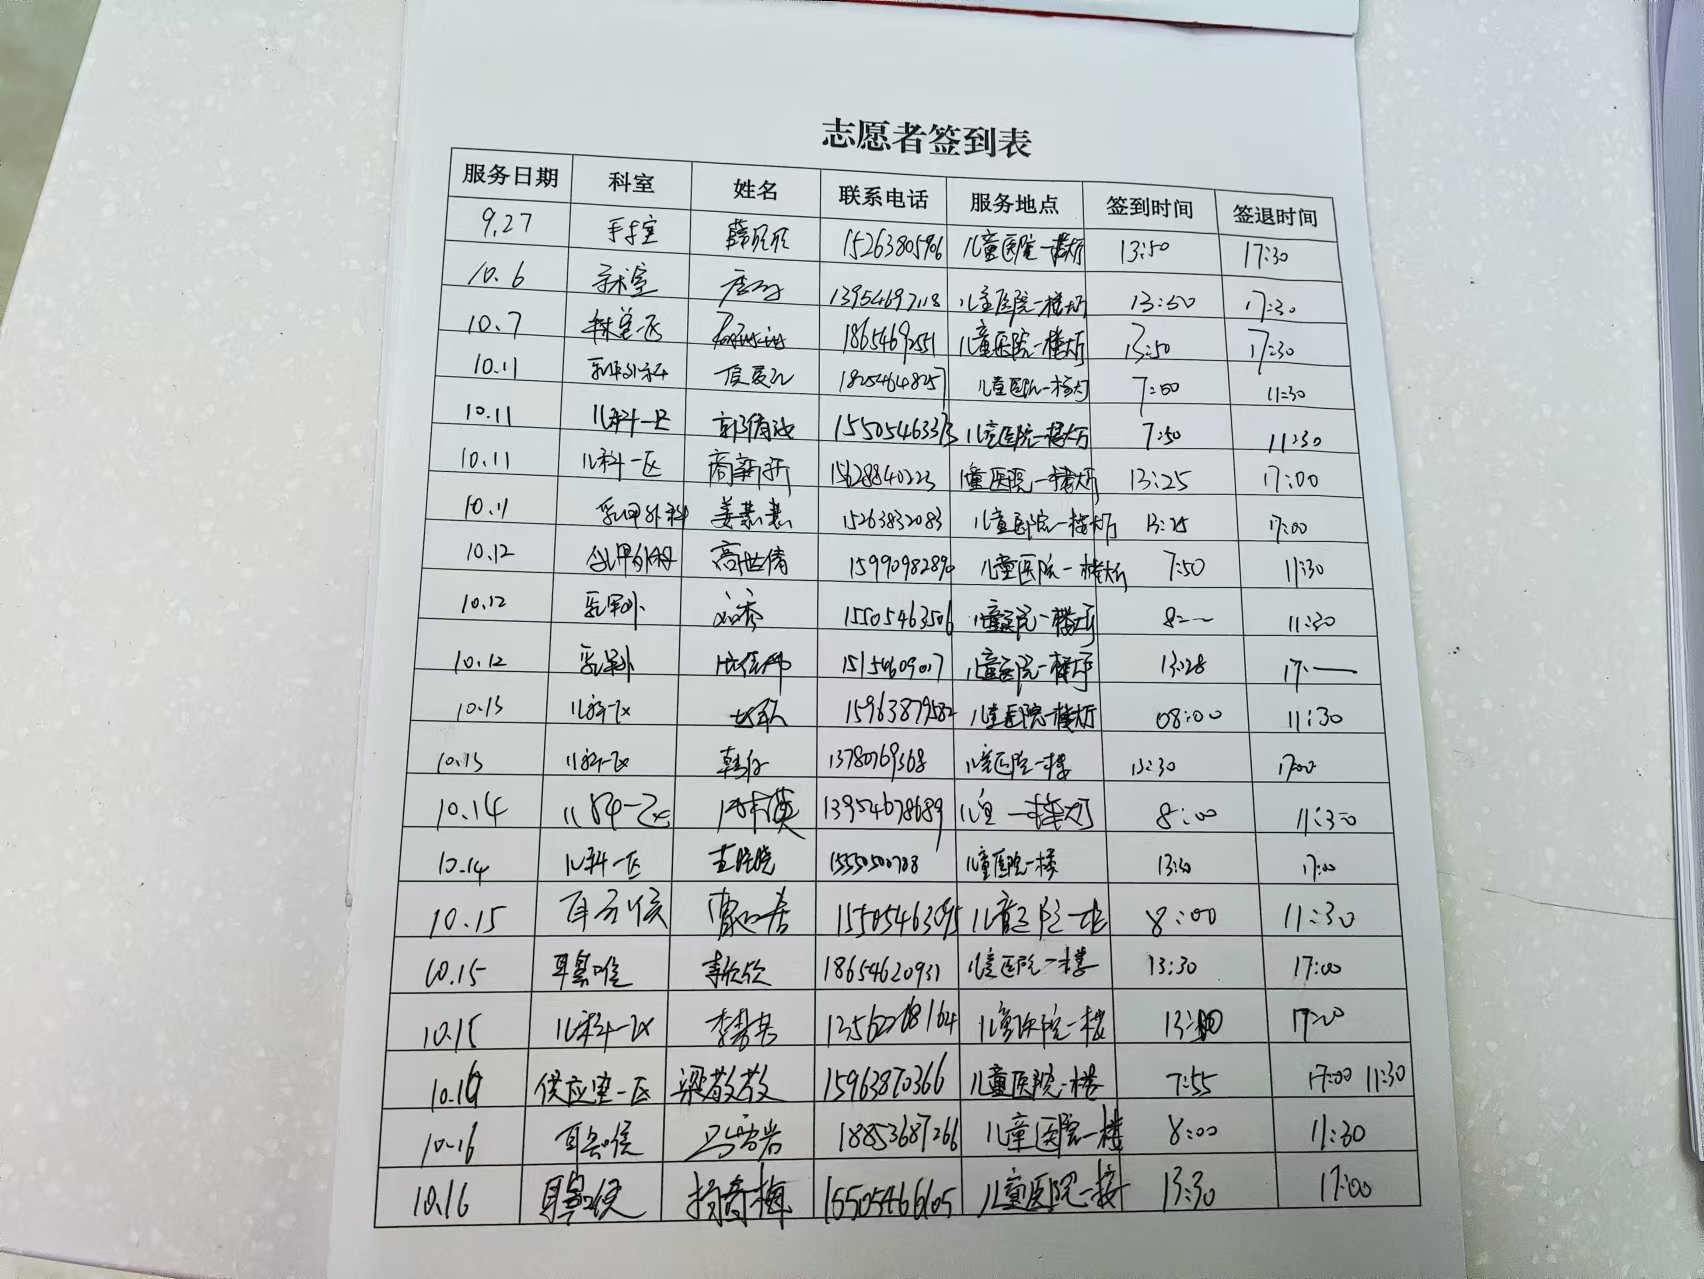 志愿者签到表
服务日期 科室 姓名 联系电话 服务地点 签到时间 签退时间
9.27 手术室 薛欣欣 儿童医院一楼大厅 13:50 17:30
10.6 手术室 儿童医院一楼大厅 13:50 17:30
10.7 儿童医院一楼大厅 13:50 17:30
10.11 乳甲外科 18254648257 儿童医院一楼大厅 7:50 11:30
10.11 儿科一区 15505463373 儿童医院一楼大厅 7:50 11:30
10.11 儿科一区 商新新 15628840223 儿童医院一楼大厅 13:25 17:00
10.11 乳甲外科 姜慧慧 15263832083 儿童医院一楼大厅 13:25 17:00
10.12 乳甲外科 高世倩 15990982890 儿童医院一楼大厅 7:50 11:30
10.12 乳甲外 15505463506 儿童医院一楼大厅 8:-- 11:30
10.12 乳甲外 儿童医院一楼大厅 13:28 17:—
10.13 儿科一区 15963879582 儿童医院一楼大厅 08:00 11:30
10.13 儿科一区 13780769368 儿童医院一楼 13:30 17:00
10.14 儿科一区 13954678689 儿童 一楼大厅 8:00 11:30
10.14 儿科一区 15550500708 儿童医院一楼 17:00
10.15 15505463095 儿童医院一楼 8:00 11:30
10.15 耳鼻喉 李欣欣 18654620931 儿童医院一楼 13:30 17:00
10.15 儿科一区 儿童医院一楼 17:00
10.16 供应室一区 梁敬敬 15963870366 儿童医院一楼 7:55 17:00 11:30
10.16 耳鼻喉 18853687266 儿童医院一楼 8:00 11:30
10.16 耳鼻喉 杨奇梅 15505466605 儿童医院一楼 13:30 17:00